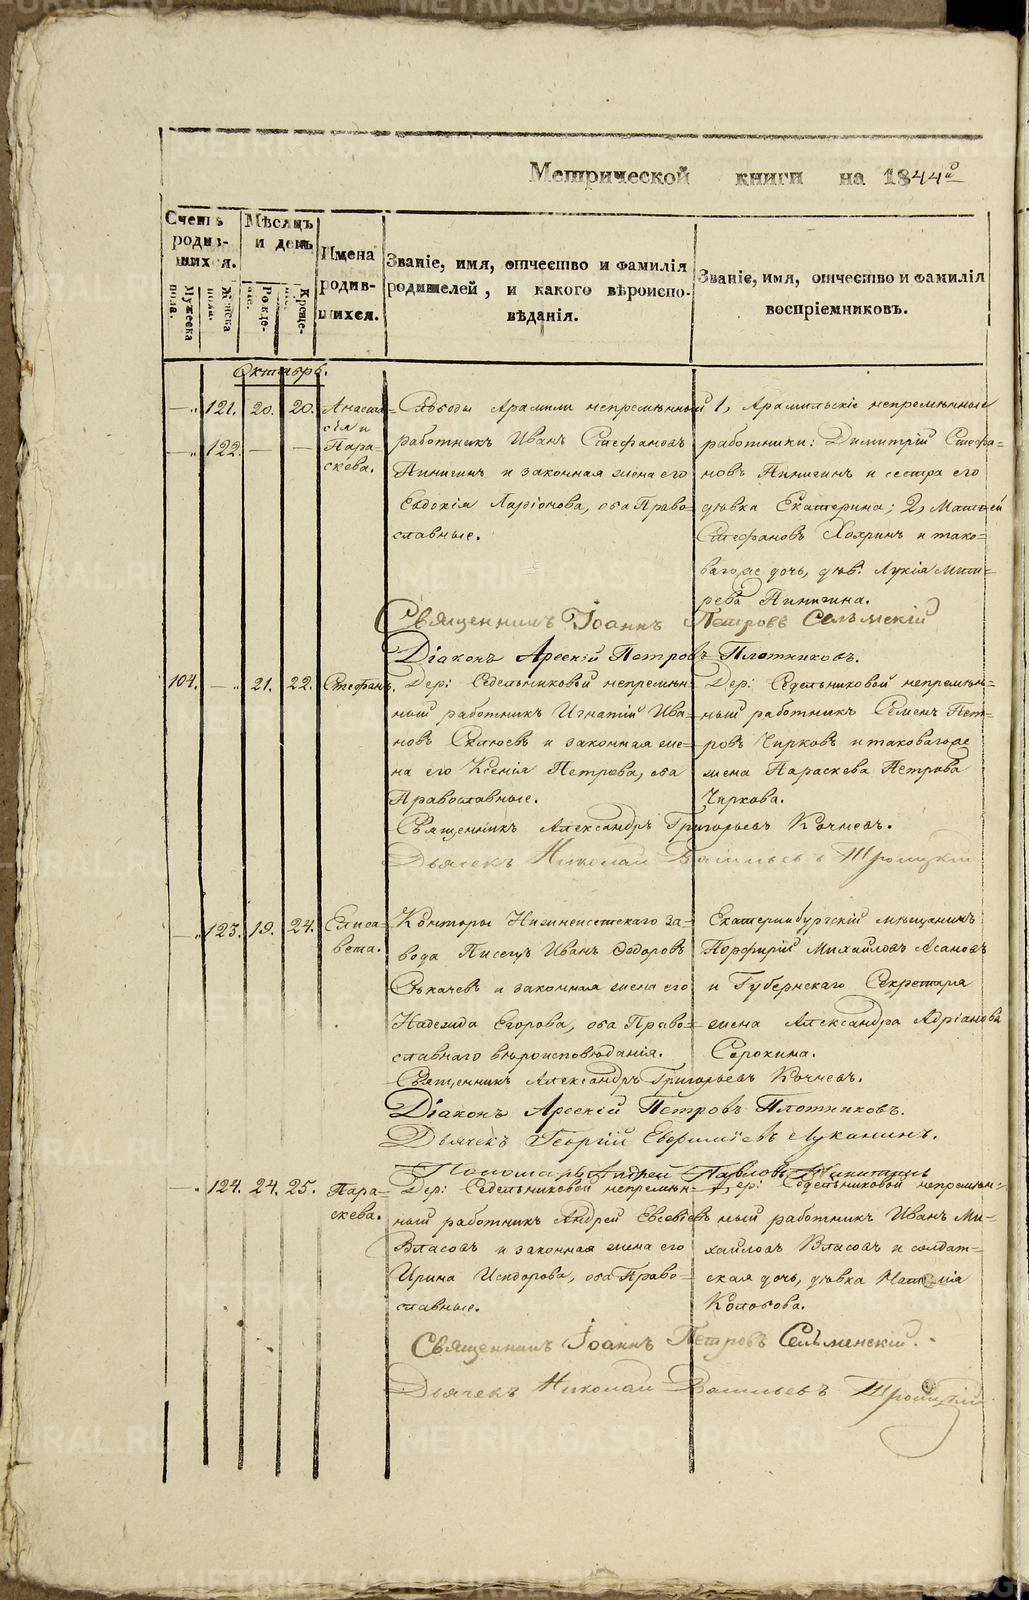 METRIKI.GASO-URAL.RU
Метрической книги на 1844й
Счетъ родив-шихся.
Мѣсяцъ и день
Имена родив-шихся.
Званіе, имя, отчество и фамилія родителей, и какого вѣроиспо-вѣданія.
Званіе, имя, отчество и фамилія воспріемниковъ.
Мужеска пола.
Женска пола.
Рожде-
Креще-
Октябрь.
121. 20. 20. Анаста-сія и
122. — — Пара-скева.
Слободы Арамили непремѣнный
работникъ Иванъ Стефановъ
Пинигинъ и законная жена его
Евдокія Ларіонова, оба Право-
славные.
1, Арамильскіе непремѣнные
работники: Димитрій Стефа-
новъ Пинигинъ и сестра его
дѣвка Екатерина; 2, Матѳей
Стефановъ Хохринъ и тако-
вагоже дочь, дѣв:
Пинигина.
Священникъ Іоаннъ Петровъ Сельменскій
Діаконъ Арсеній Петровъ Плотниковъ.
104. — 21. 22. Стефанъ.
Дер: Седельниковой непремѣн-
ный работникъ Игнатій Ива-
новъ и законная же-
на его Ксенія Петрова, оба
Православные.
Дер: Седельниковой непремѣн-
ный работникъ Семенъ Пет-
ровъ Чирковъ и таковагоже
жена Параскева Петрова
Чиркова.
Священникъ Александръ Григорьевъ Кочневъ.
Дьячекъ Николай Васильевъ Троицкій
123. 19. 24. Елиса-вета.
Конторы Нижнеисетскаго за-
вода Писецъ Иванъ Ѳедоровъ
и законная жена его
Надежда Егорова, оба Право-
славнаго вѣроисповѣданія.
Екатеринбургскій мѣщанинъ
Порфирій Михайловъ
и Губернскаго Секретаря
жена Александра Адріанова
Сорокина.
Священникъ Александръ Григорьевъ Кочневъ.
Діаконъ Арсеній Петровъ Плотниковъ.
Дьячекъ Георгій Евфиміевъ Луканинъ.
Пономарь Андрей Павловъ Никитинъ
124. 24. 25. Пара-скева.
Дер: Седельниковой непремѣн-
ный работникъ Андрей Евсевіевъ
Власовъ и законная жена его
Ирина Исидорова, оба Право-
славные.
Дер: Седельниковой непремѣн-
ный работникъ Иванъ Ми-
хайловъ Власовъ и солдат-
ская дочь, дѣвка Наталія
Колобова.
Священникъ Іоаннъ Петровъ Сельменскій.
Дьячекъ Николай Васильевъ Троицкій